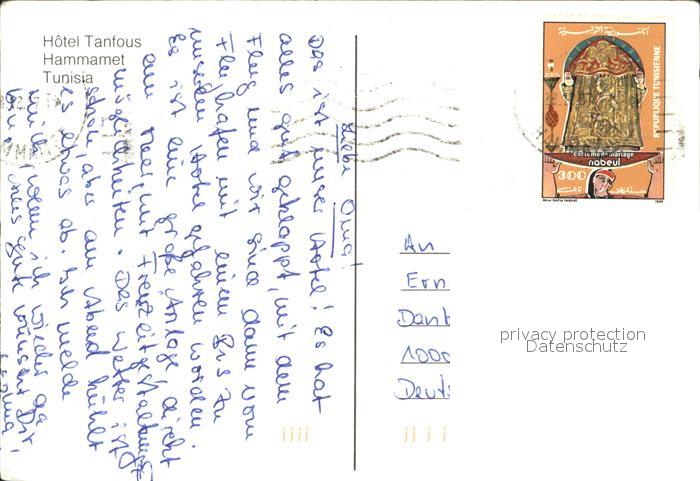 Hôtel Tanfous
Hammamet
Tunisia
Liebe Oma!
Das ist unser Hotel! Es hat
alles gut geklappt, mit dem
Flug und wir sind dann vom
Flughafen mit einem Bus zu
unserem Hotel gefahren worden.
Es ist eine große Anlage direkt
am Meer, mit Freizeitgestaltungs
möglichkeiten. Das Wetter ist
schön, aber am Abend kühlt
es etwas ab. Ich melde
mich, wenn ich wieder da
alles gute wünscht Dir
REPUBLIQUE TUNISIENNE
الجمهورية التونسية
costume de mariage
nabeul
300
1989
An
Ern
Dank
1000
Deuts
privacy protection
Datenschutz